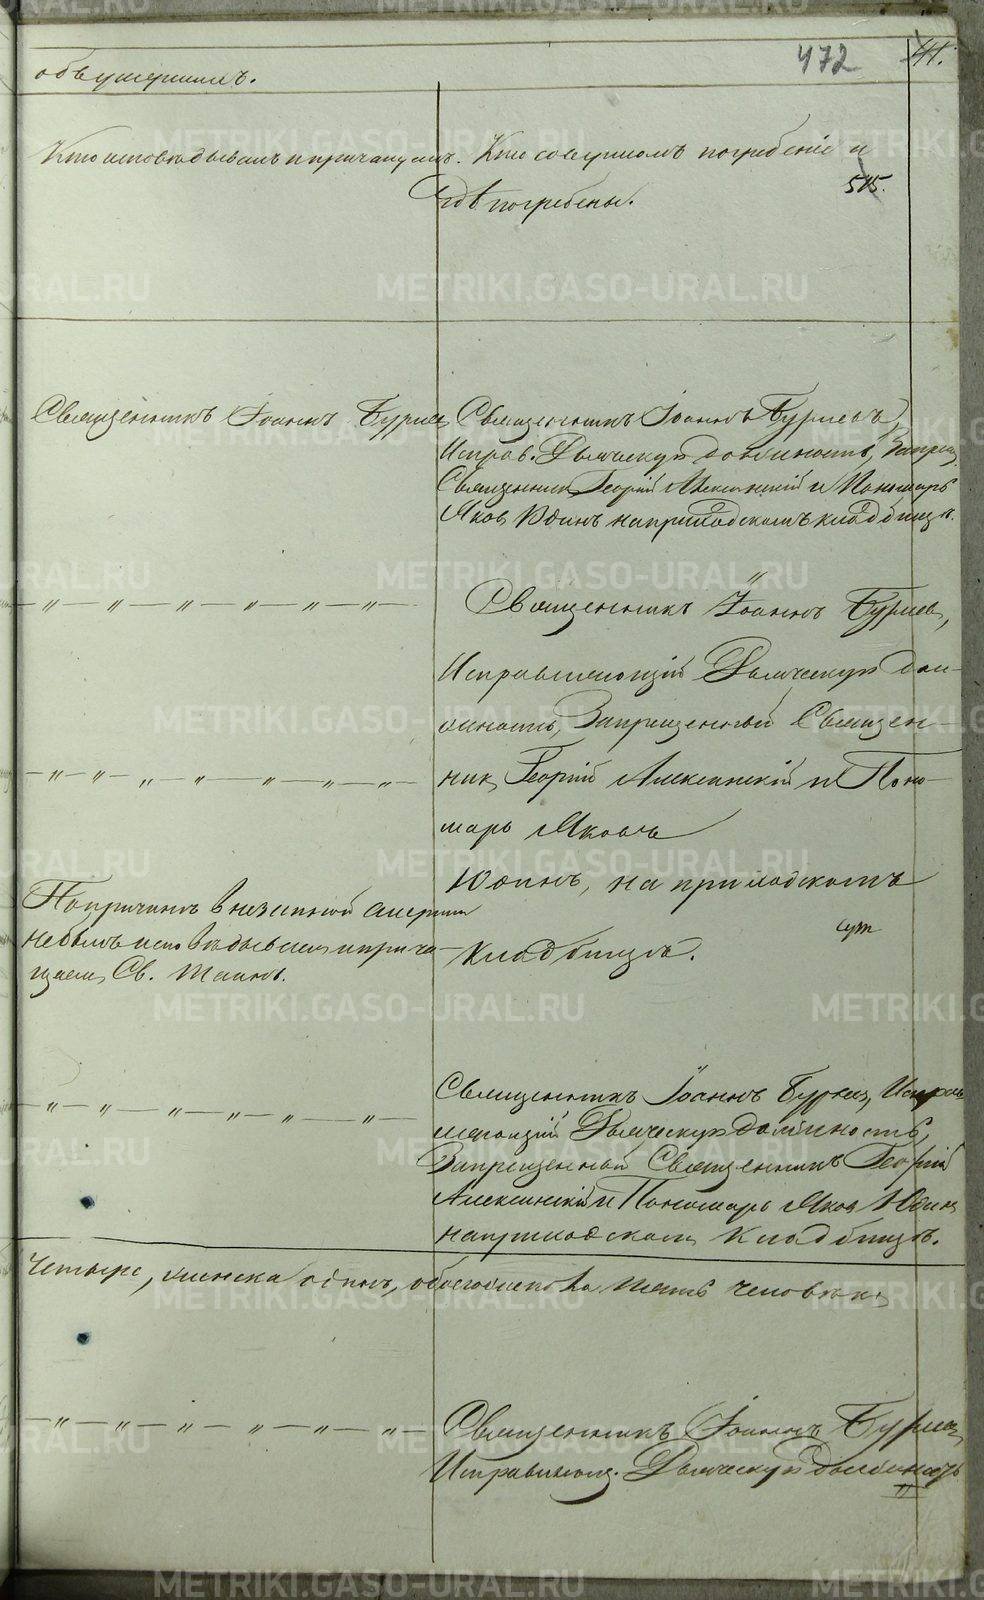 объ умершихъ.
472
41.
Кто исповѣдывалъ и причащалъ.
Кто совершалъ погребеніе и
гдѣ погребены.
515.
Священникъ Іоаннъ Бурцев
Священникъ Іоаннъ Бурцевъ,
Исправ. Дьяческую должность, Запрещ.
Священник Георгій Алексинскій и Пономарь
Яков Юдинъ на приходскомъ кладбищѣ.
— „ — „ — „ — „ — „ — „ —
Священникъ Іоаннъ Бурцев,
Исправляющій Дьяческую дол-
жность, Запрещенный Священ-
— „ — „ — „ — „ — „ — „ — „ —
ник Георгій Алексинскій и Поно-
марь Яковъ
Юдинъ, на приходскомъ
кладбищѣ.
По причинѣ внезапной смерти
небылъ исповѣдываем и прича-
щаем Св. Таинъ.
— „ — „ — „ — „ — „ — „ —
Священникъ Іоаннъ Бурцев, Исправ
ляющій Дьяческую должность,
Запрещенный Священникъ Георгій
Алексинскій и Пономарь Яков Юдин
на приходском кладбищѣ.
Четыре, женска одинъ, обоего пять человѣк.
— „ — „ — „ — „ — „ — „ —
Священникъ Іоаннъ Бурцев,
Исправляющ. Дьяческую должность
METRIKI.GASO-URAL.RU